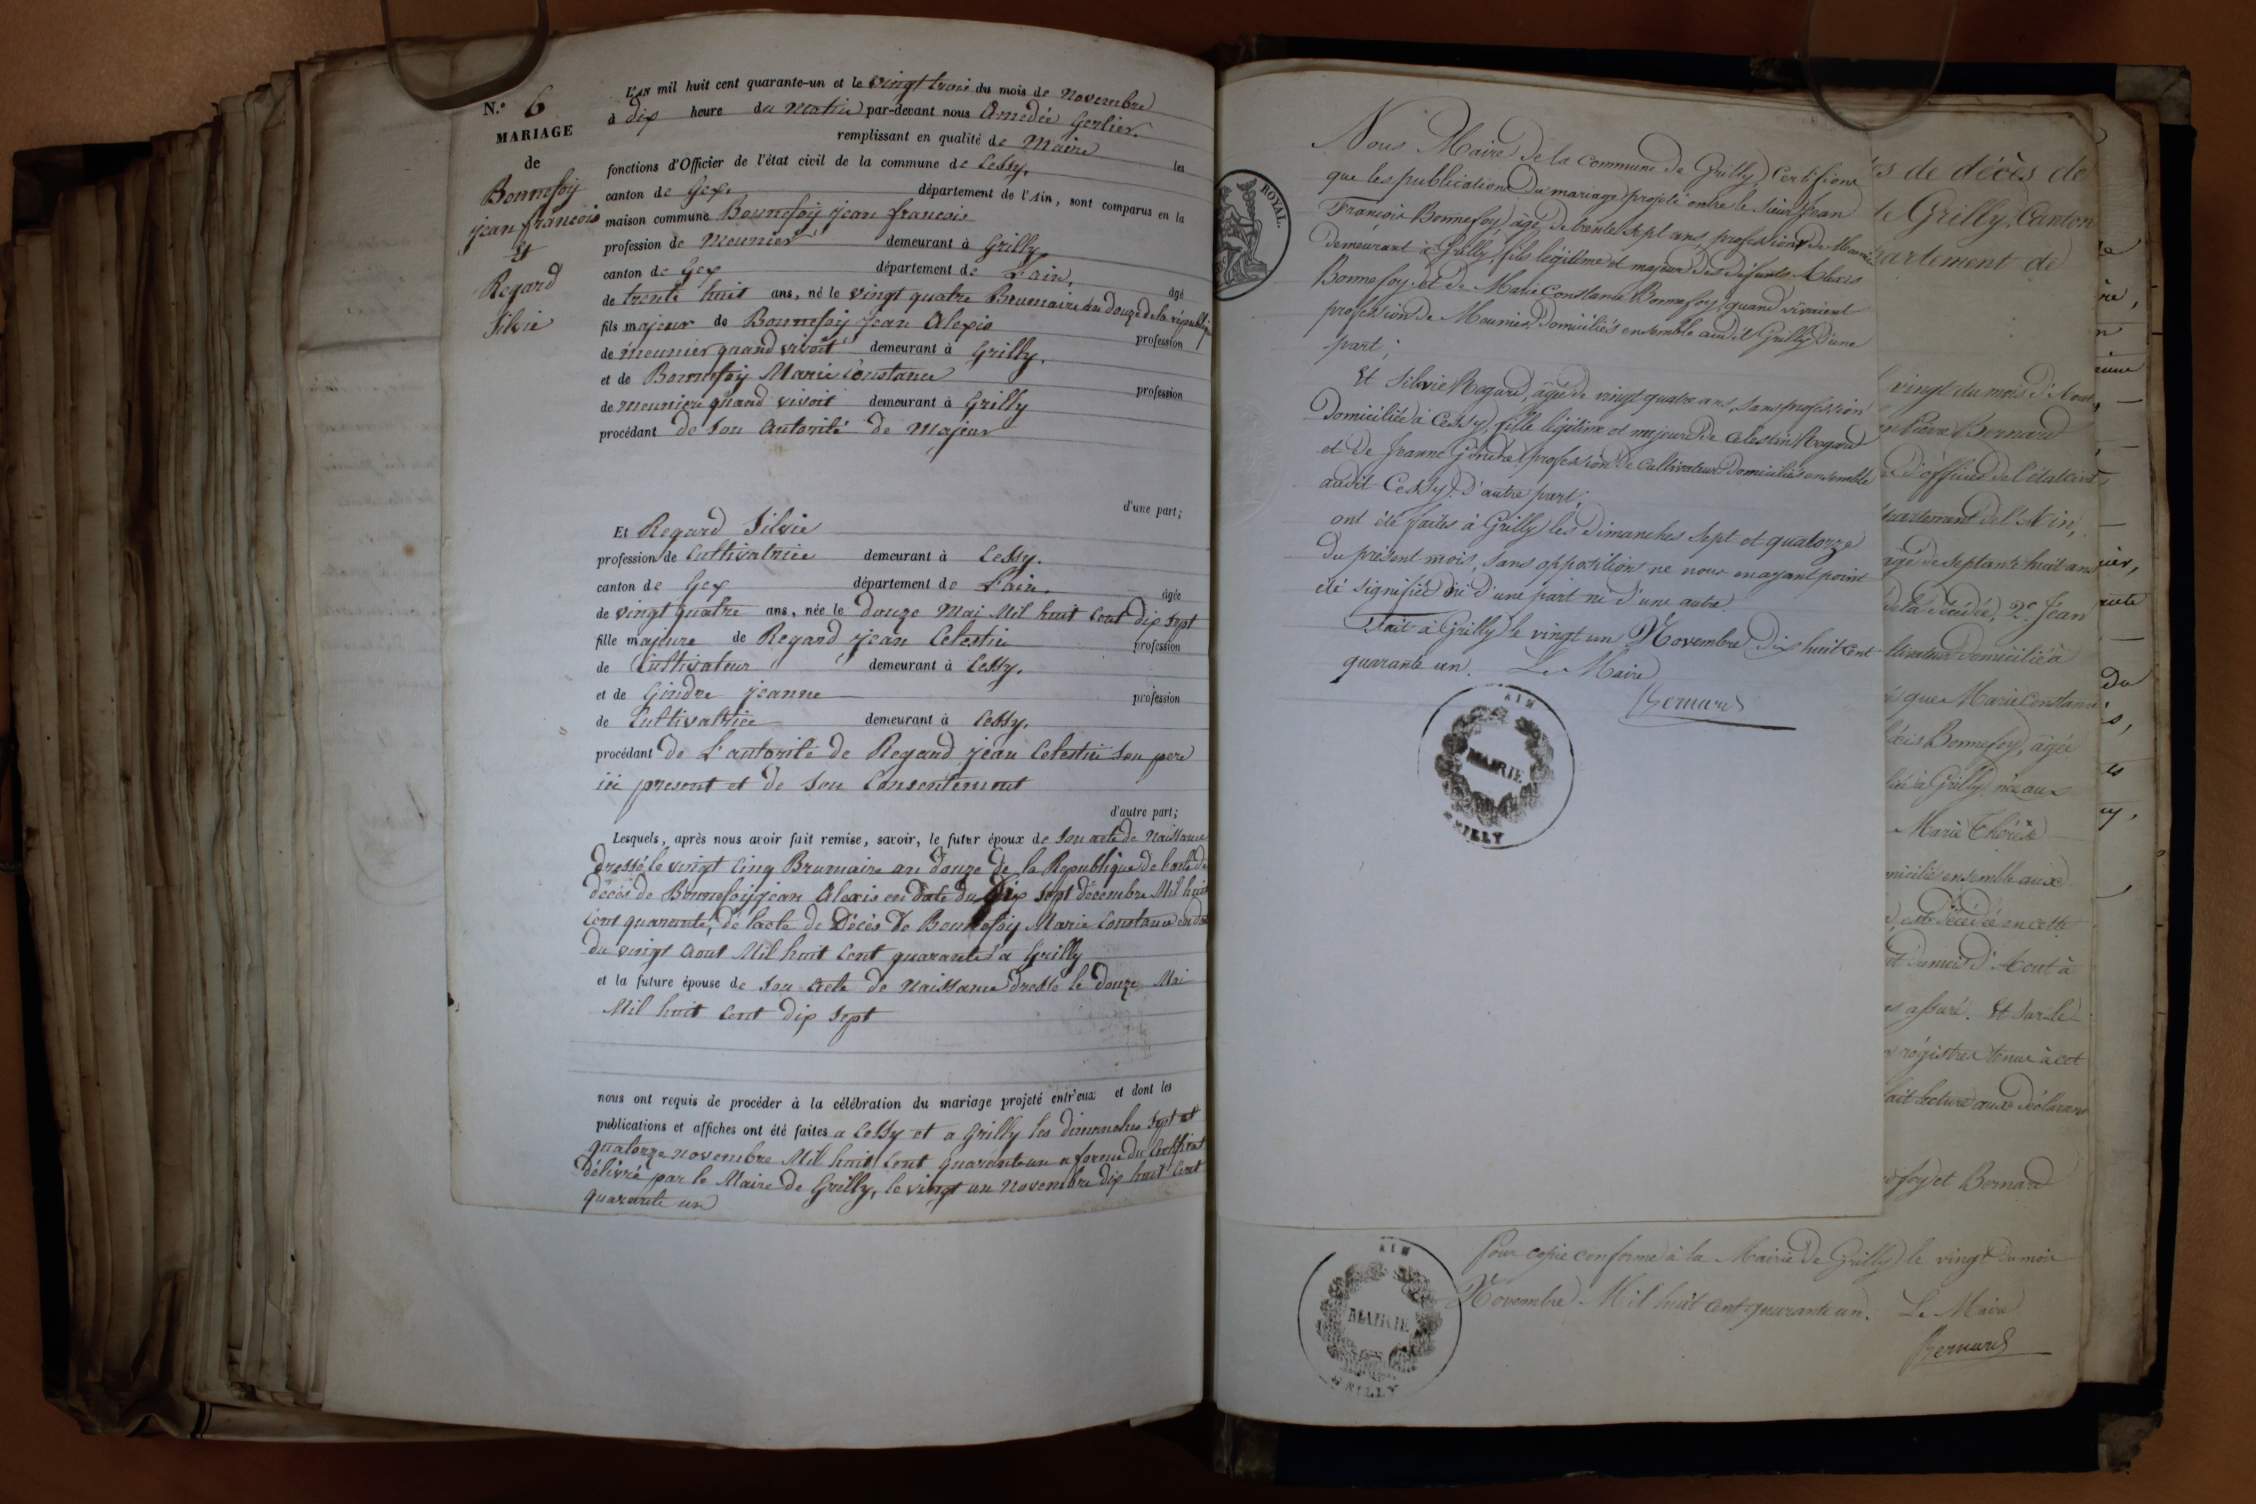 N.º 6
MARIAGE
de
Bonnefoy
jean francois
et
Regard
Silvie
L'AN mil huit cent quarante-un et le vingt trois du mois de novembre
à dix heure du matin par-devant nous Amédée Gerlier
remplissant en qualité de Maire les
fonctions d'Officier de l'état civil de la commune de Cessy,
canton de Gex, département de l'Ain, sont comparus en la
maison commune Bonnefoy jean francois
profession de Meunier demeurant à Grilly
canton de Gex département de L'ain, âgé
de trente huit ans, né le vingt quatre Brumaire an douze de la républiq
fils majeur de Bonnefoy jean Alexis profession
de meunier quand vivoit demeurant à Grilly,
et de Bonnefoy Marie Constance profession
de meuniere quand vivoit demeurant à Grilly
procédant de Son autorité de Majeur
d'une part;
Et Regard Silvie
profession de Cultivatrice demeurant à Cessy.
canton de Gex département de L'ain. âgée
de vingt quatre ans, née le douze Mai Mil huit Cent dix sept
fille majeure de Regard jean Celestin profession
de Cultivateur demeurant à Cessy,
et de Gindre jeanne profession
de Cultivatrice demeurant à Cessy,
procédant de L'autorité de Regard jean Celestin Son pere
ici present et de Son Consentement
d'autre part;
Lesquels, après nous avoir fait remise, savoir, le futur époux de Son acte de Naissance
dressé le vingt Cinq Brumaire an douze de la Republique de l'acte de
décès de Bonnefoy jean Alexis en date du dix sept décembre Mil huit
Cent quarante, de l'acte de Décès de Bonnefoy Marie Constance en date
du vingt aout Mil huit Cent quarante a Grilly
et la future épouse de Son acte de Naissance dressé le douze Mai
Mil huit Cent dix sept
nous ont requis de procéder à la célébration du mariage projeté entr'eux et dont les
publications et affiches ont été faites a Cessy et a Grilly les dimanches sept et
quatorze novembre Mil huit Cent quarante un a forme du Certificat
délivré par le Maire de Grilly, le vingt un Novembre dix huit Cent
quarante un
ROYAL.
Nous Maire de la commune de Grilly, Certifions
que les publications du mariage projeté entre le Sieur Jean
François Bonnefoy, âgé de trente sept ans, profession de Meunier
demeurant à Grilly, fils légitime et majeur des défunts Alexis
Bonnefoy et de Marie Constance Bonnefoy, quand vivaient
profession de Meunier, Domiciliés ensemble audit Grilly d'une
part;
Et Silvie Regard, âgée de vingt quatre ans, sans profession
Domiciliée à Cessy, fille légitime et majeure de Celestin Regard
et de Jeanne Gindre profession de Cultivateur Domiciliés ensemble
audit Cessy, D'autre part;
ont été faites à Grilly les dimanches sept et quatorze
Du présent mois, sans oppositions ne nous en ayant point
été signifiée ni d'une part ni d'une autre.
Fait à Grilly le vingt un Novembre dix huit cent
quarante un. Le Maire
Bernard
AIN
MAIRIE
GRILLY
s de décès de
de Grilly, Canton
partement de
vingt du mois d'Aout
Bernard
d'officier de l'état civil
partement de l'Ain,
âgé de septante huit ans
de la décédée, 2º Jean
ltivateur domicilié à
que Marie Constance
Bonnefoy, âgée
à Grilly, née aux
Marie Thérèse
miciliés ensemble aux
est décédée en cette
du mois d'Aout à
assuré. Et Sur le
régistres tenus à cet
fait lecture aux déclarans
foy et Bernard
Pour copie conforme à la Mairie de Grilly le vingt du mois
Novembre Mil huit cent quarante un. Le Maire
Bernard
AIN
MAIRIE
GRILLY